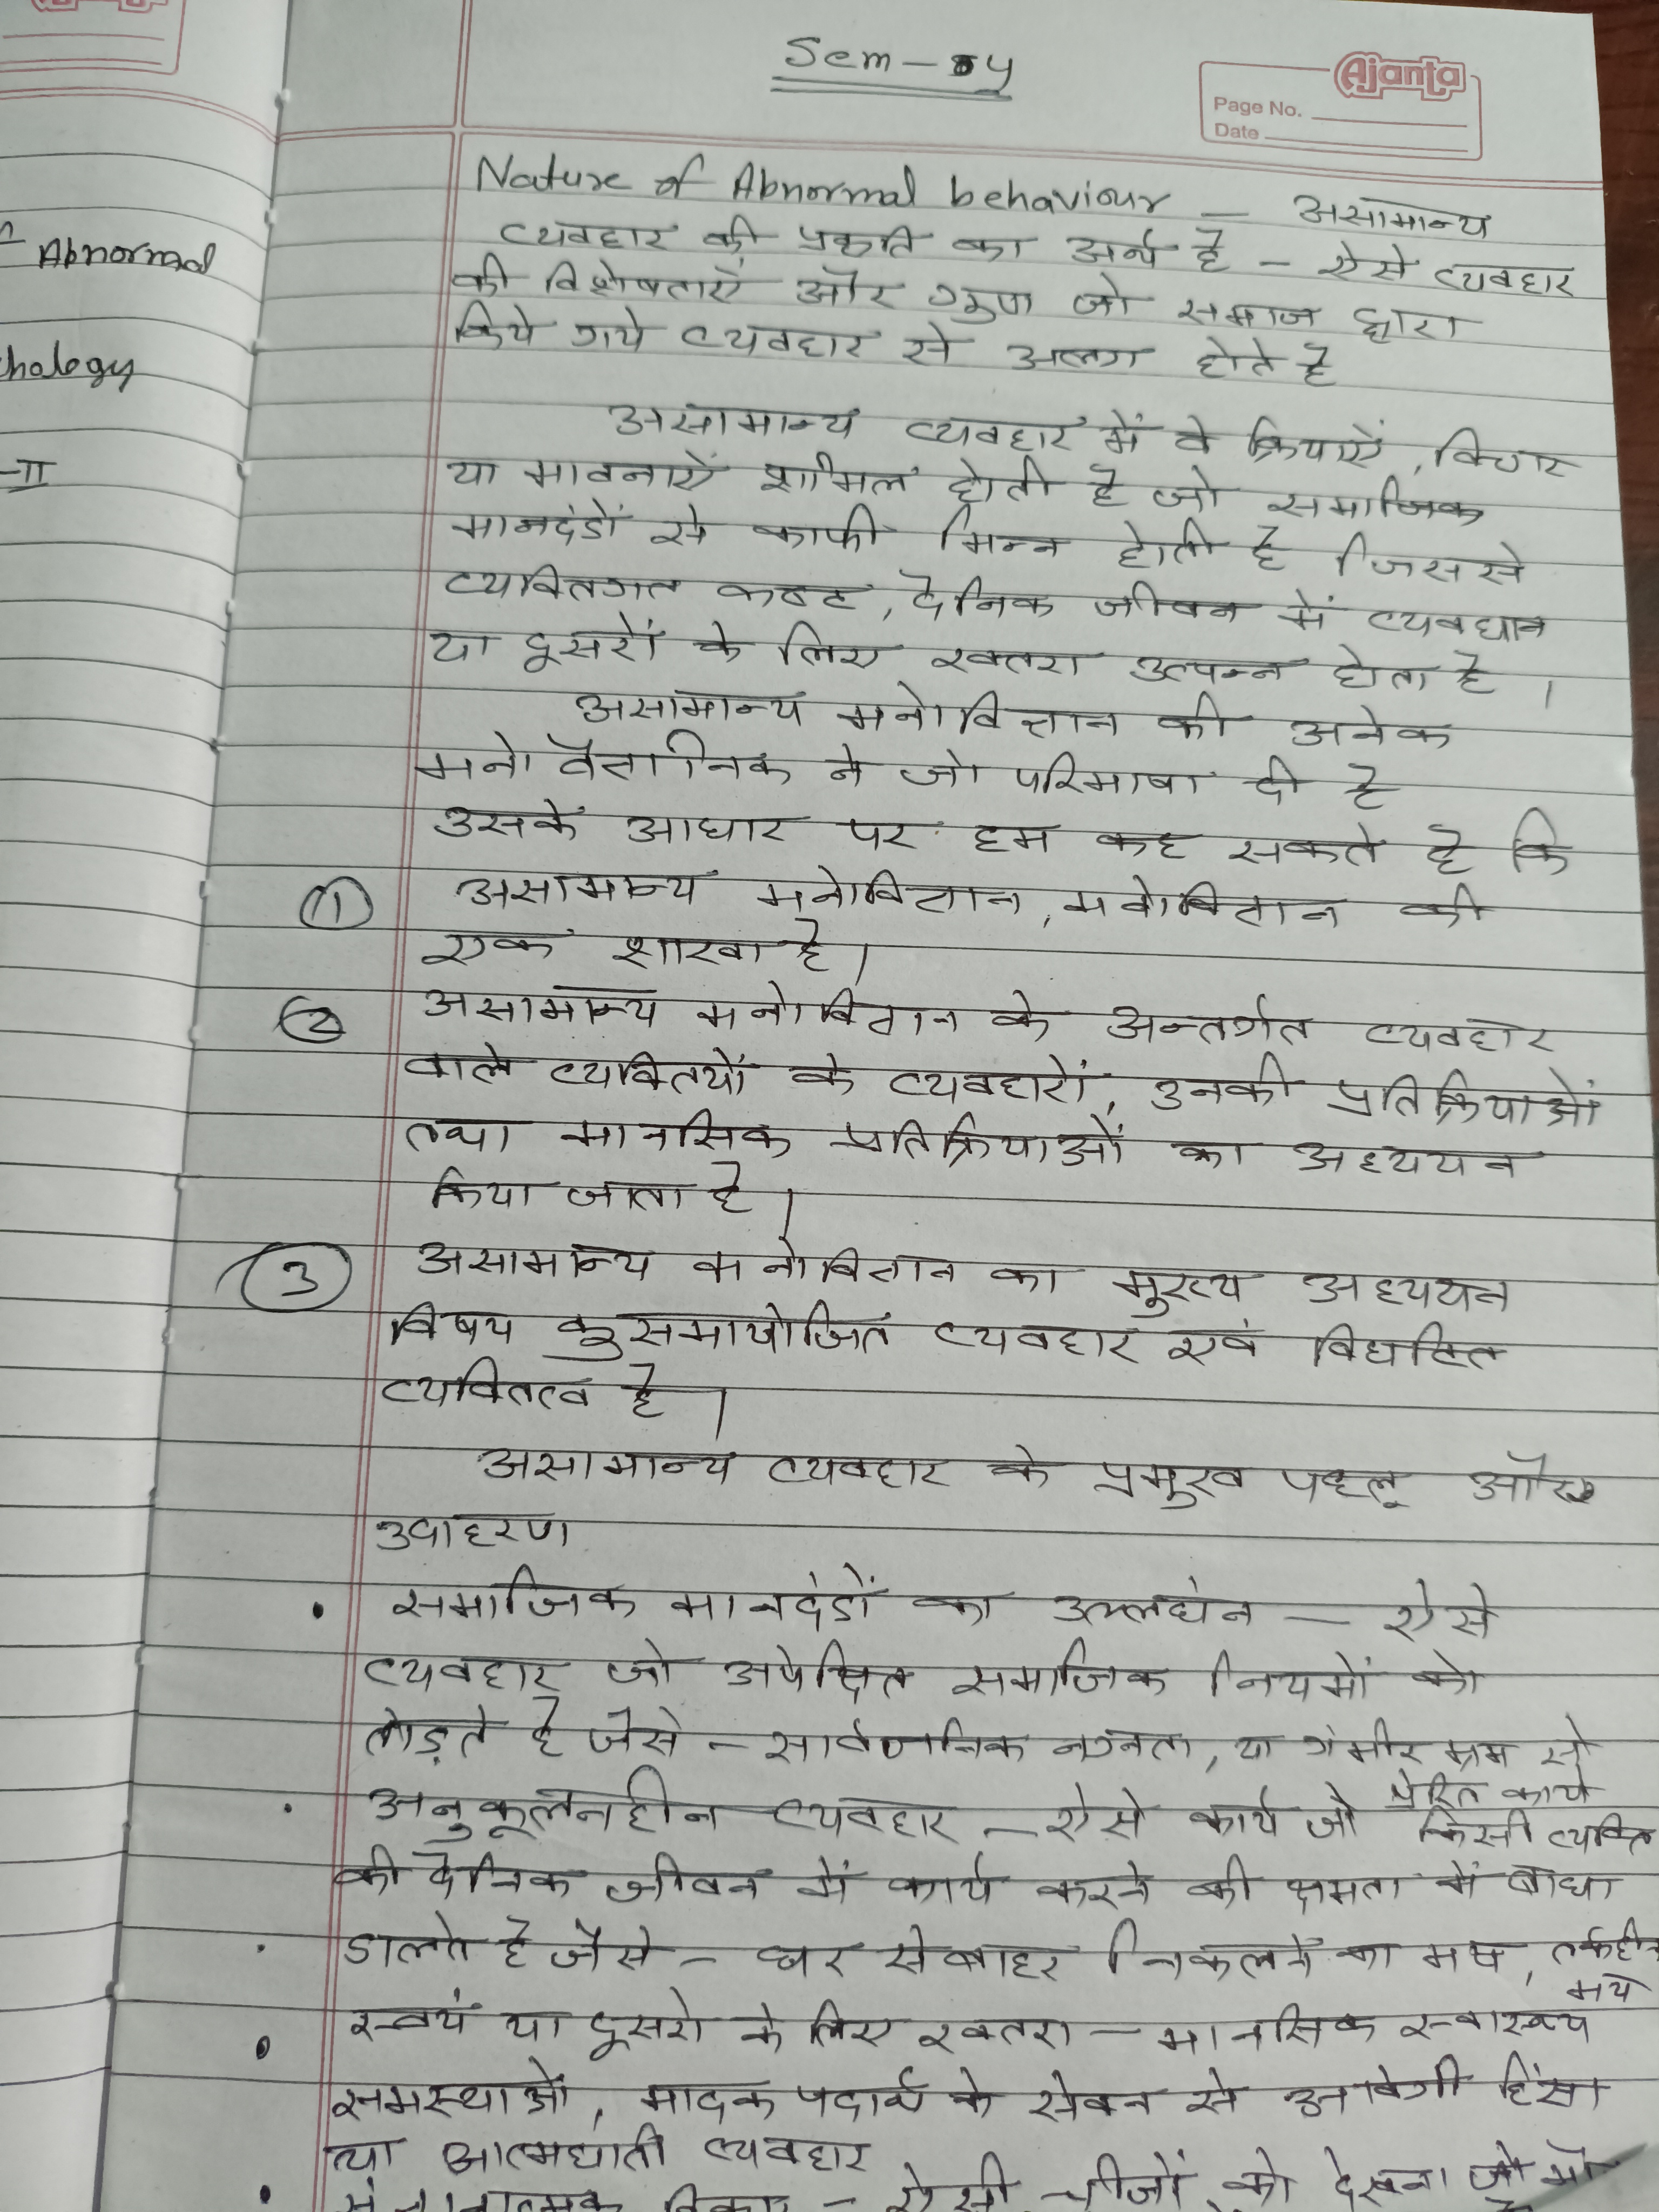 Sem - 4
Ajanta
Page No.
Date
Abnormal
hology
-II
Nature of Abnormal behaviour - असामान्य
व्यवहार की प्रकृति का अर्थ है - ऐसे व्यवहार
की विशेषताऐं और गुण जो समाज द्वारा
किये गये व्यवहार से अलग होते है
असामान्य व्यवहार में वे क्रियाऐं, विचार
या भावनाऐं शामिल होती है जो समाजिक
मानदंडों से काफी भिन्न होती है जिससे
व्यक्तिगत कष्ट, दैनिक जीवन में व्यवधान
या दूसरों के लिए खतरा उत्पन्न होता है ।
असामान्य मनोविज्ञान की अनेक
मनोवैज्ञानिक ने जो परिभाषा दी है
उसके आधार पर हम कह सकते है कि
① असामान्य मनोविज्ञान, मनोविज्ञान की
एक शाखा है।
② असामान्य मनोविज्ञान के अन्तर्गत व्यवहार
वाले व्यक्तियों के व्यवहारों, उनकी प्रतिक्रियाओं
तथा मानसिक प्रतिक्रियाओं का अध्ययन
किया जाता है।
③ असामान्य मनोविज्ञान का मुख्य अध्ययन
विषय कुसमायोजित व्यवहार एवं विघटित
व्यक्तित्व है।
असामान्य व्यवहार के प्रमुख पहलू और
उदाहरण
• समाजिक मानदंडों का उल्लघंन - ऐसे
व्यवहार जो अपेक्षित समाजिक नियमों को
तोड़ते है जैसे - सार्वजनिक नग्नता, या गंभीर भ्रम से
प्रेरित कार्य
• अनुकूलनहीन व्यवहार - ऐसे कार्य जो किसी व्यक्ति
की दैनिक जीवन में कार्य करने की क्षमता में बाधा
• डालते है जैसे - घर से बाहर निकलने का भय, तर्कहीन
भय
• स्वयं या दूसरो के लिए खतरा - मानसिक स्वास्थ्य
समस्याओं, मादक पदार्थ के सेवन से हिंसा
या आत्मघाती व्यवहार
• ऐसी चीजों को देखना जो